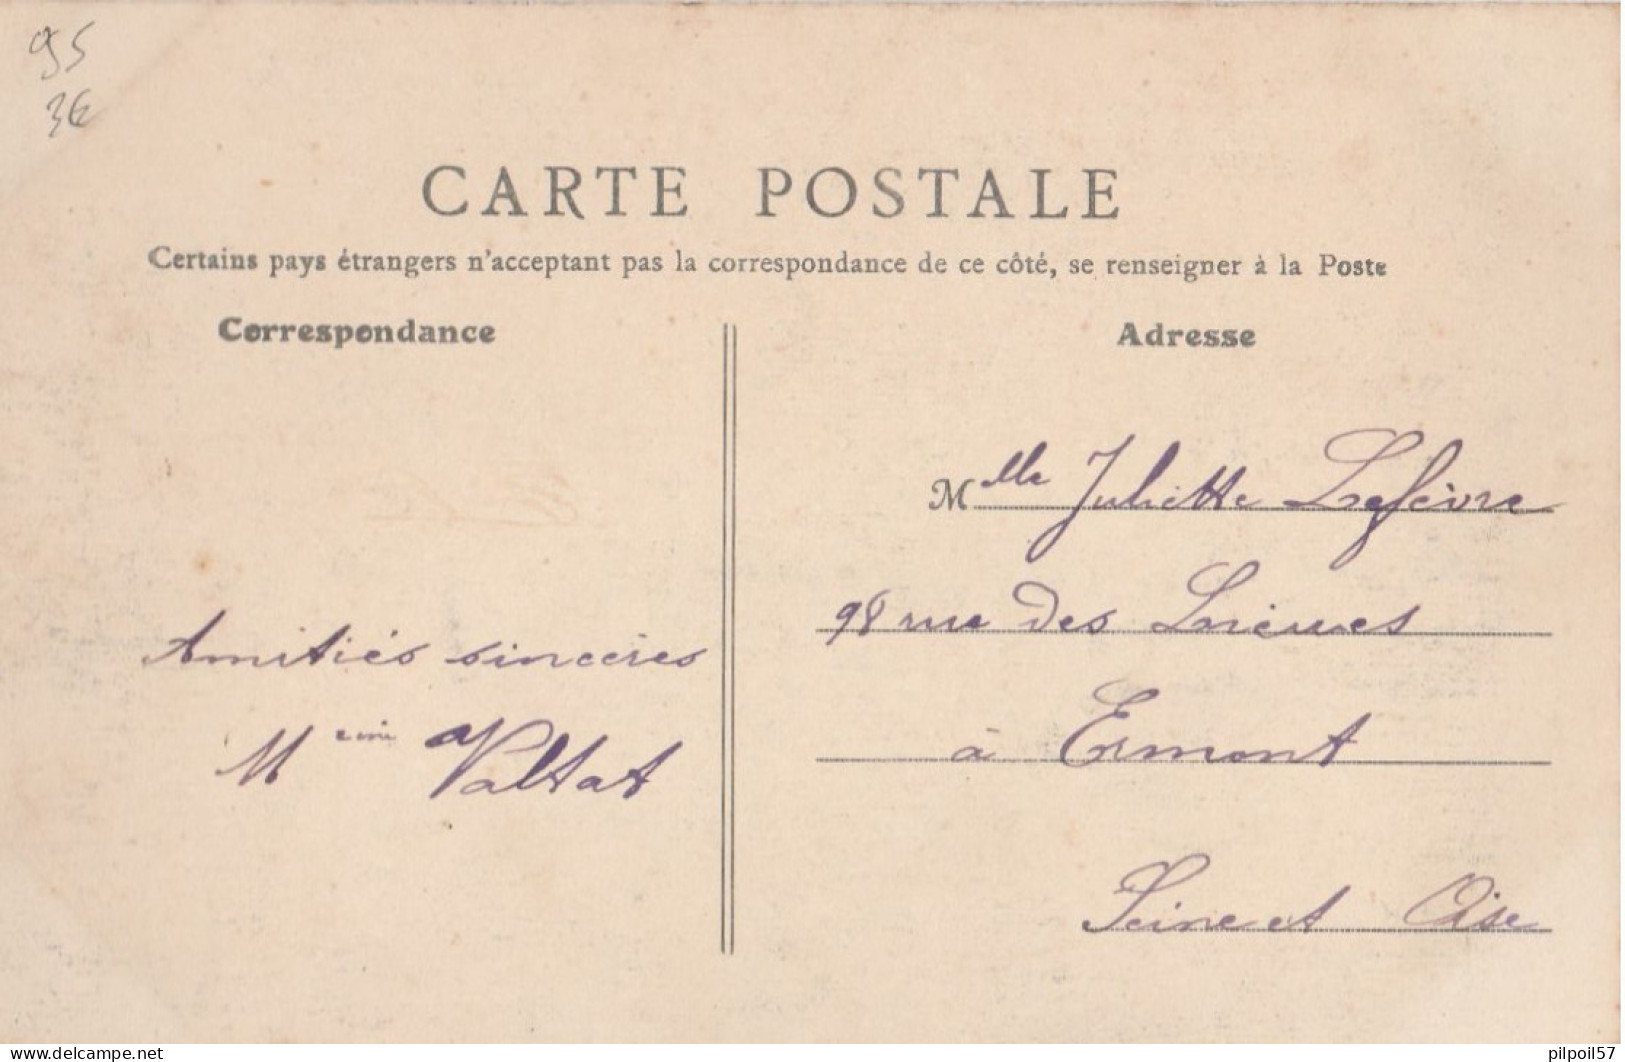 95
36
CARTE POSTALE
Certains pays étrangers n'acceptant pas la correspondance de ce côté, se renseigner à la Poste
Correspondance
Adresse
Mlle Juliette Lefèvre
98 rue des
à Ermont
Seine et Oise
Amitiés sincères
Valtat
www.delcampe.net
pilpoil57